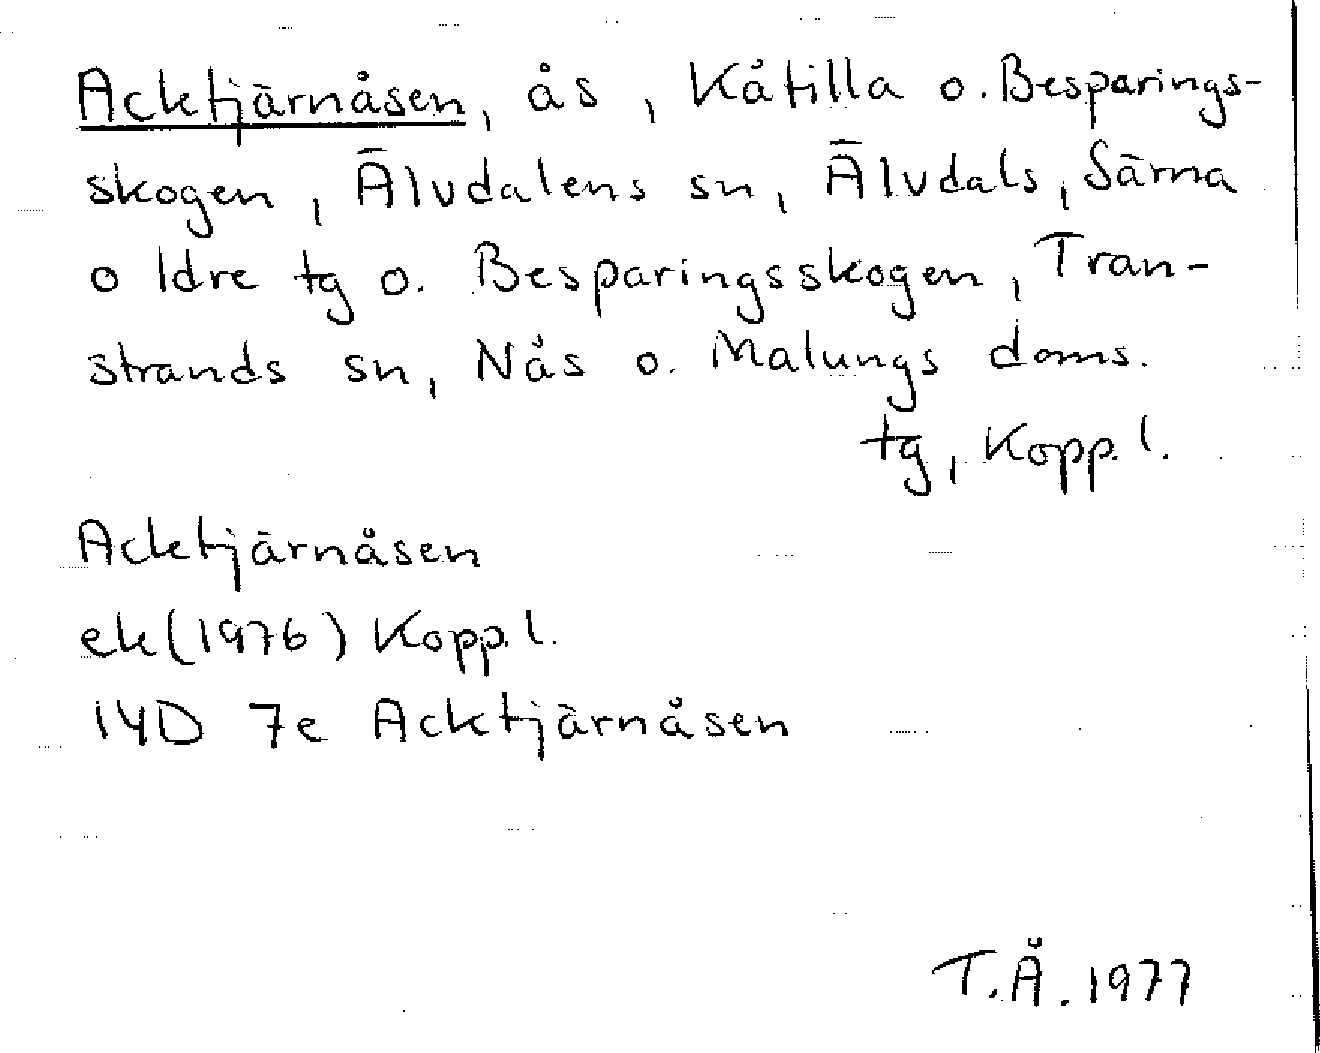 Acktjärnåsen, ås, Kåtilla o. Besparings-
skogen, Älvdalens sn, Älvdals, Särna
o Idre tg o. Besparingsskogen, Tran-
strands sn, Nås o. Malungs doms.
tg, Kopp. l.
Acktjärnåsen
ek (1976) Kopp. l.
14D 7e Acktjärnåsen
T.Å. 1977